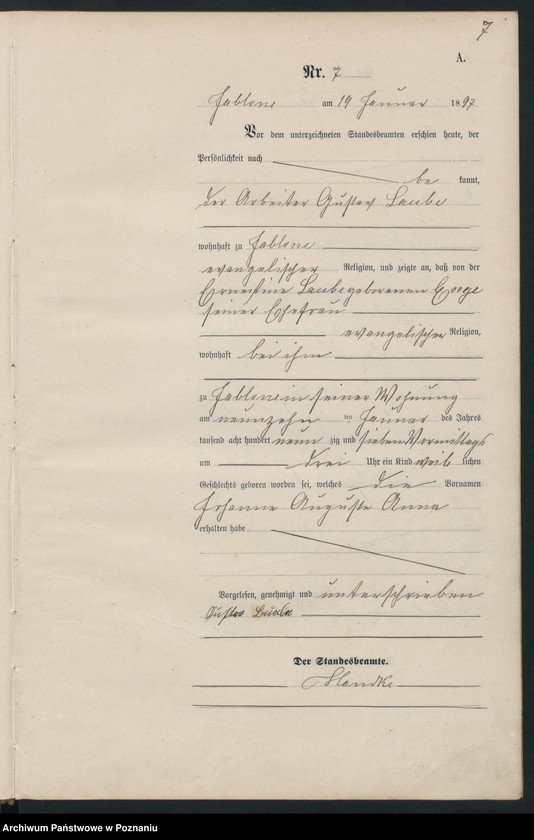 7
A.
Nr. 7
Jablone am 19 Januar 1897
Vor dem unterzeichneten Standesbeamten erschien heute, der
Persönlichkeit nach
be kannt,
der Arbeiter Gustav Laube
wohnhaft zu Jablone
evangelischer Religion, und zeigte an, daß von der
Ernestine Laube geborenen
seiner Ehefrau
evangelischer Religion,
wohnhaft bei ihm
zu Jablone in seiner Wohnung
am neunzehn ten Januar des Jahres
tausend acht hundert neun zig und sieben Vormittags
um drei Uhr ein Kind weib lichen
Geschlechts geboren worden sei, welches die Vornamen
Johanne Auguste Anna
erhalten habe.
Vorgelesen, genehmigt und unterschrieben
Gustav Laube
Der Standesbeamte.
Archiwum Państwowe w Poznaniu